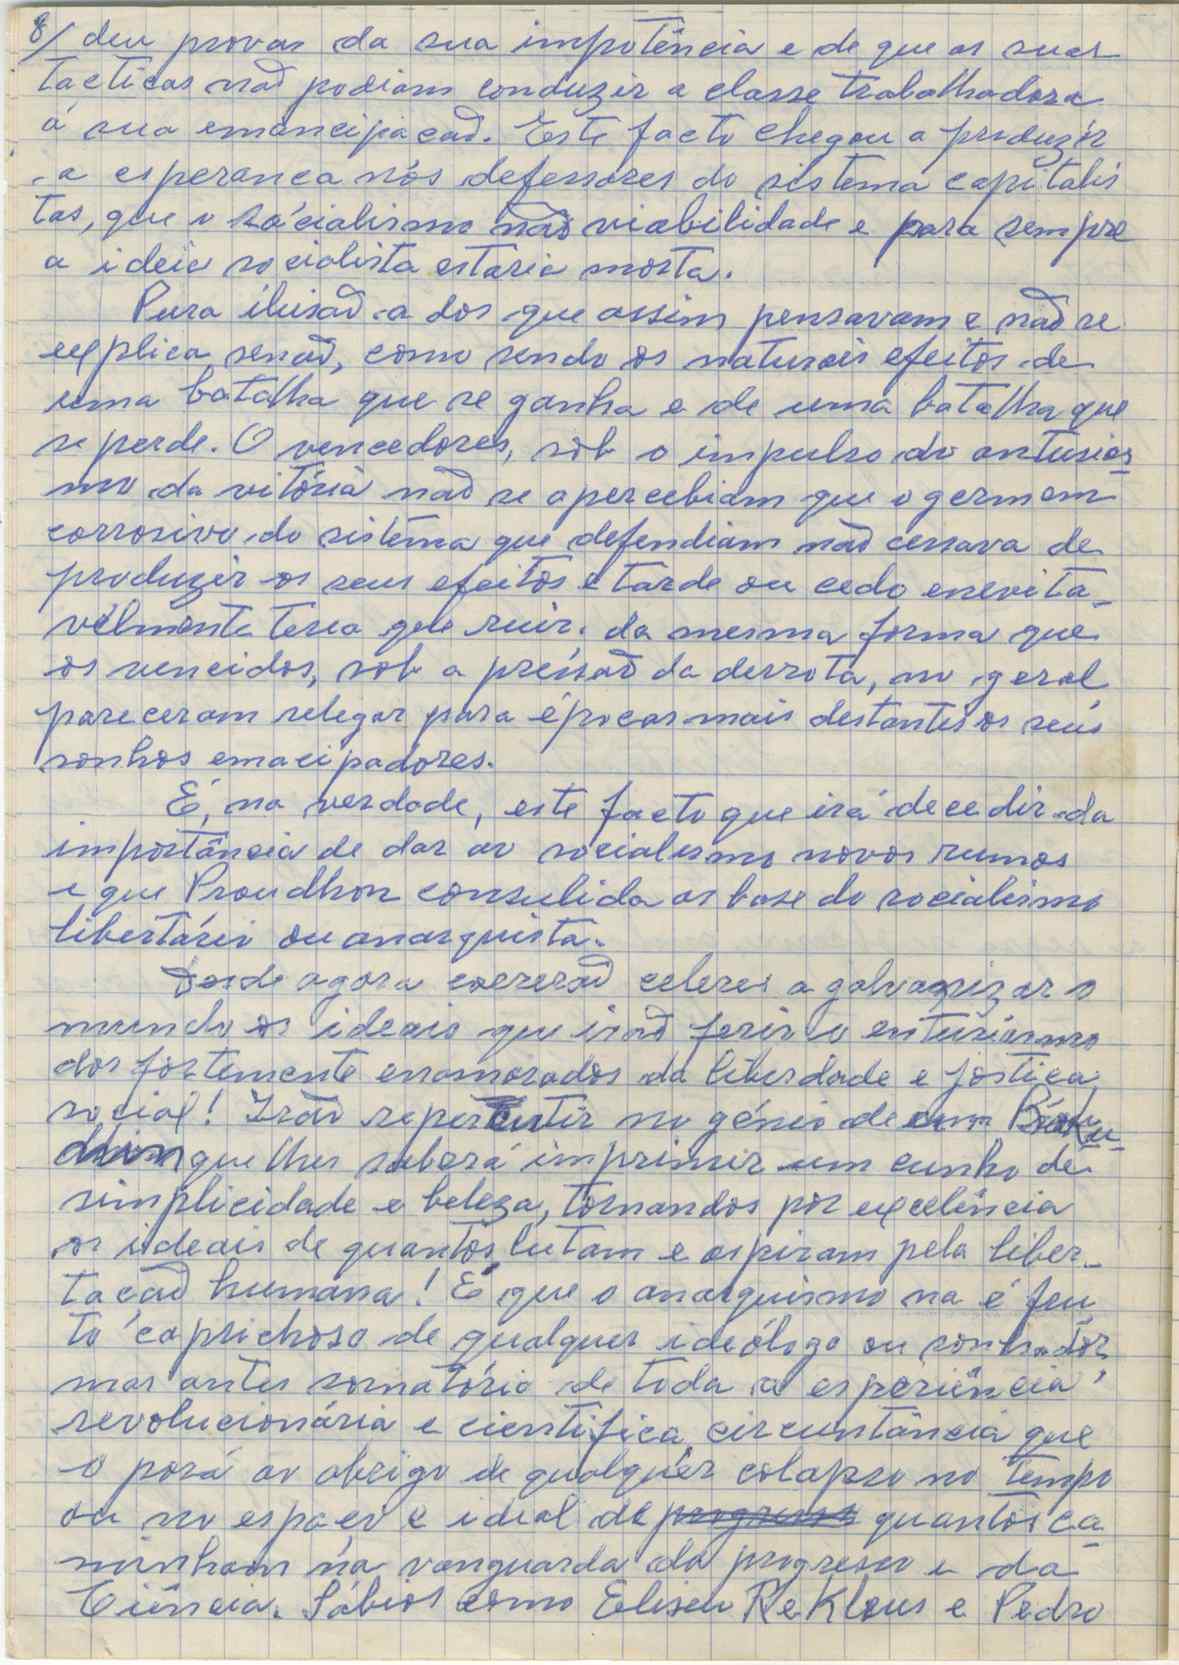 8/ deu provas da sua impotência e de que as suas
tacticas não podiam conduzir a classe trabalhadora
á sua emancipacão. Este facto chegou a produzir
a esperanca nós defensores do sistema capitalis
tas, que o sócialismo não viabilidade e para sempre
a ideia socialista estaria morta.
Pura ilusão a dos que assim pensavam e não se
explica senão, como sendo os naturais efeitos de
uma batalha que se ganha e de uma batalha que
se perde. O vencedores, sob o impulso do antusias-
mo da vitória não se apercebiam que o germem
corrosivo do sistema que defendiam não cessava de
produzir os seus efeitos e tarde ou cedo enevita-
vélmente teria que ruir. da mesma forma que
os vencidos, sob a préssão da derrota, no geral
pareceram relegar para épocas mais destantes os seus
sonhos emacipadores.
É, na verdade, este facto que irá decedir da
importância de dar ao socialismo novos rumos
e que Proudhon consulida as base do socialismo
libertário ou anarquista.
Desde agora correrão celeres a galvanizar o
mundo os ideais que irão ferir o entusiasmo
dos fortemente enamorados da liberdade e jostica
social! Irão repercutir no génio de um Baku-
que lhes saberá imprimir um cunho de
simplicidade e beleza, tornandos por excelência
os ideais de quantos lutam e aspiram pela liber-
tacão humana! É que o anarquismo na é feu
to caprichoso de qualquer ideólogo ou sonhador,
mas antes somatório de toda a experiência
revolucionária e cientifica, circuntância que
o porá ao abrigo de qualquer colapso no tempo
ou no espaco e ideal de progresso quantos ca-
minham na vanguarda do progresso e da
Ciência. Sábios como Eliseu ReKlous e Pedro